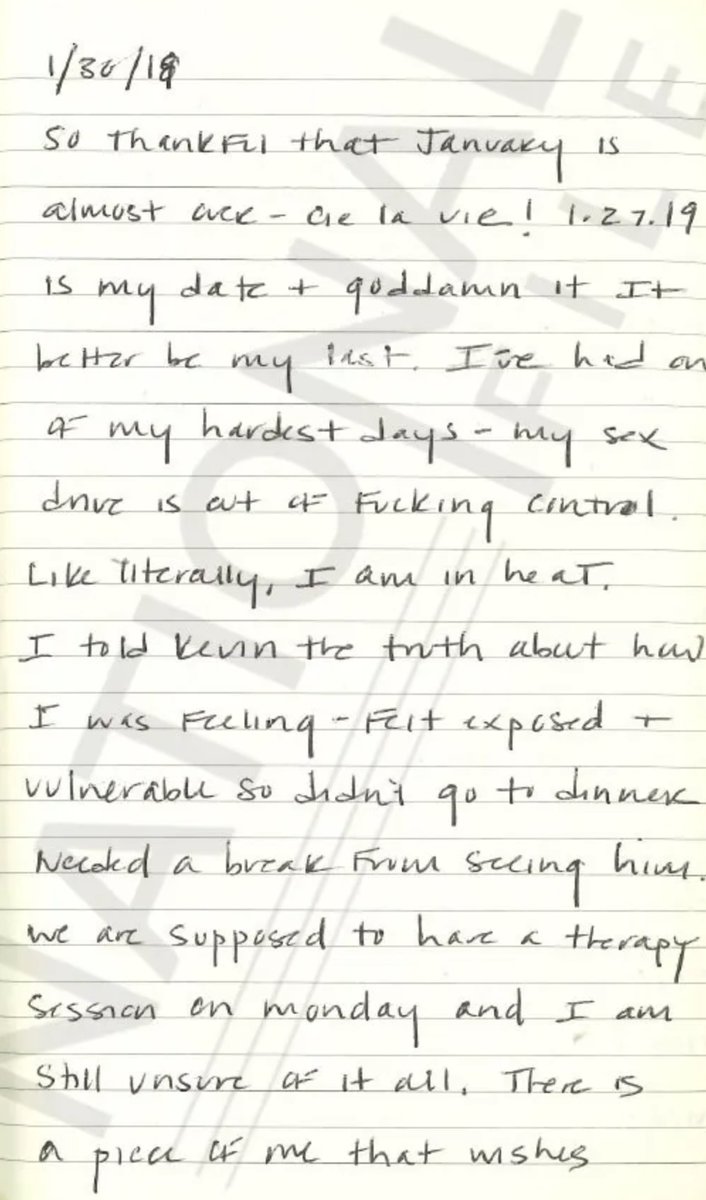 1/30/19
So thankful that January is
almost over - cie la vie! 1.27.19
is my date + goddamn it It
better be my last. I've had on
of my hardest days - my sex
drive is out of fucking control.
Like literally, I am in heat.
I told Kevin the truth about how
I was feeling - felt exposed +
vulnerable so didn't go to dinner
Needed a break from seeing him.
we are supposed to have a therapy
session on monday and I am
still unsure of it all. There is
a piece of me that wishes
NATIONAL
FILE